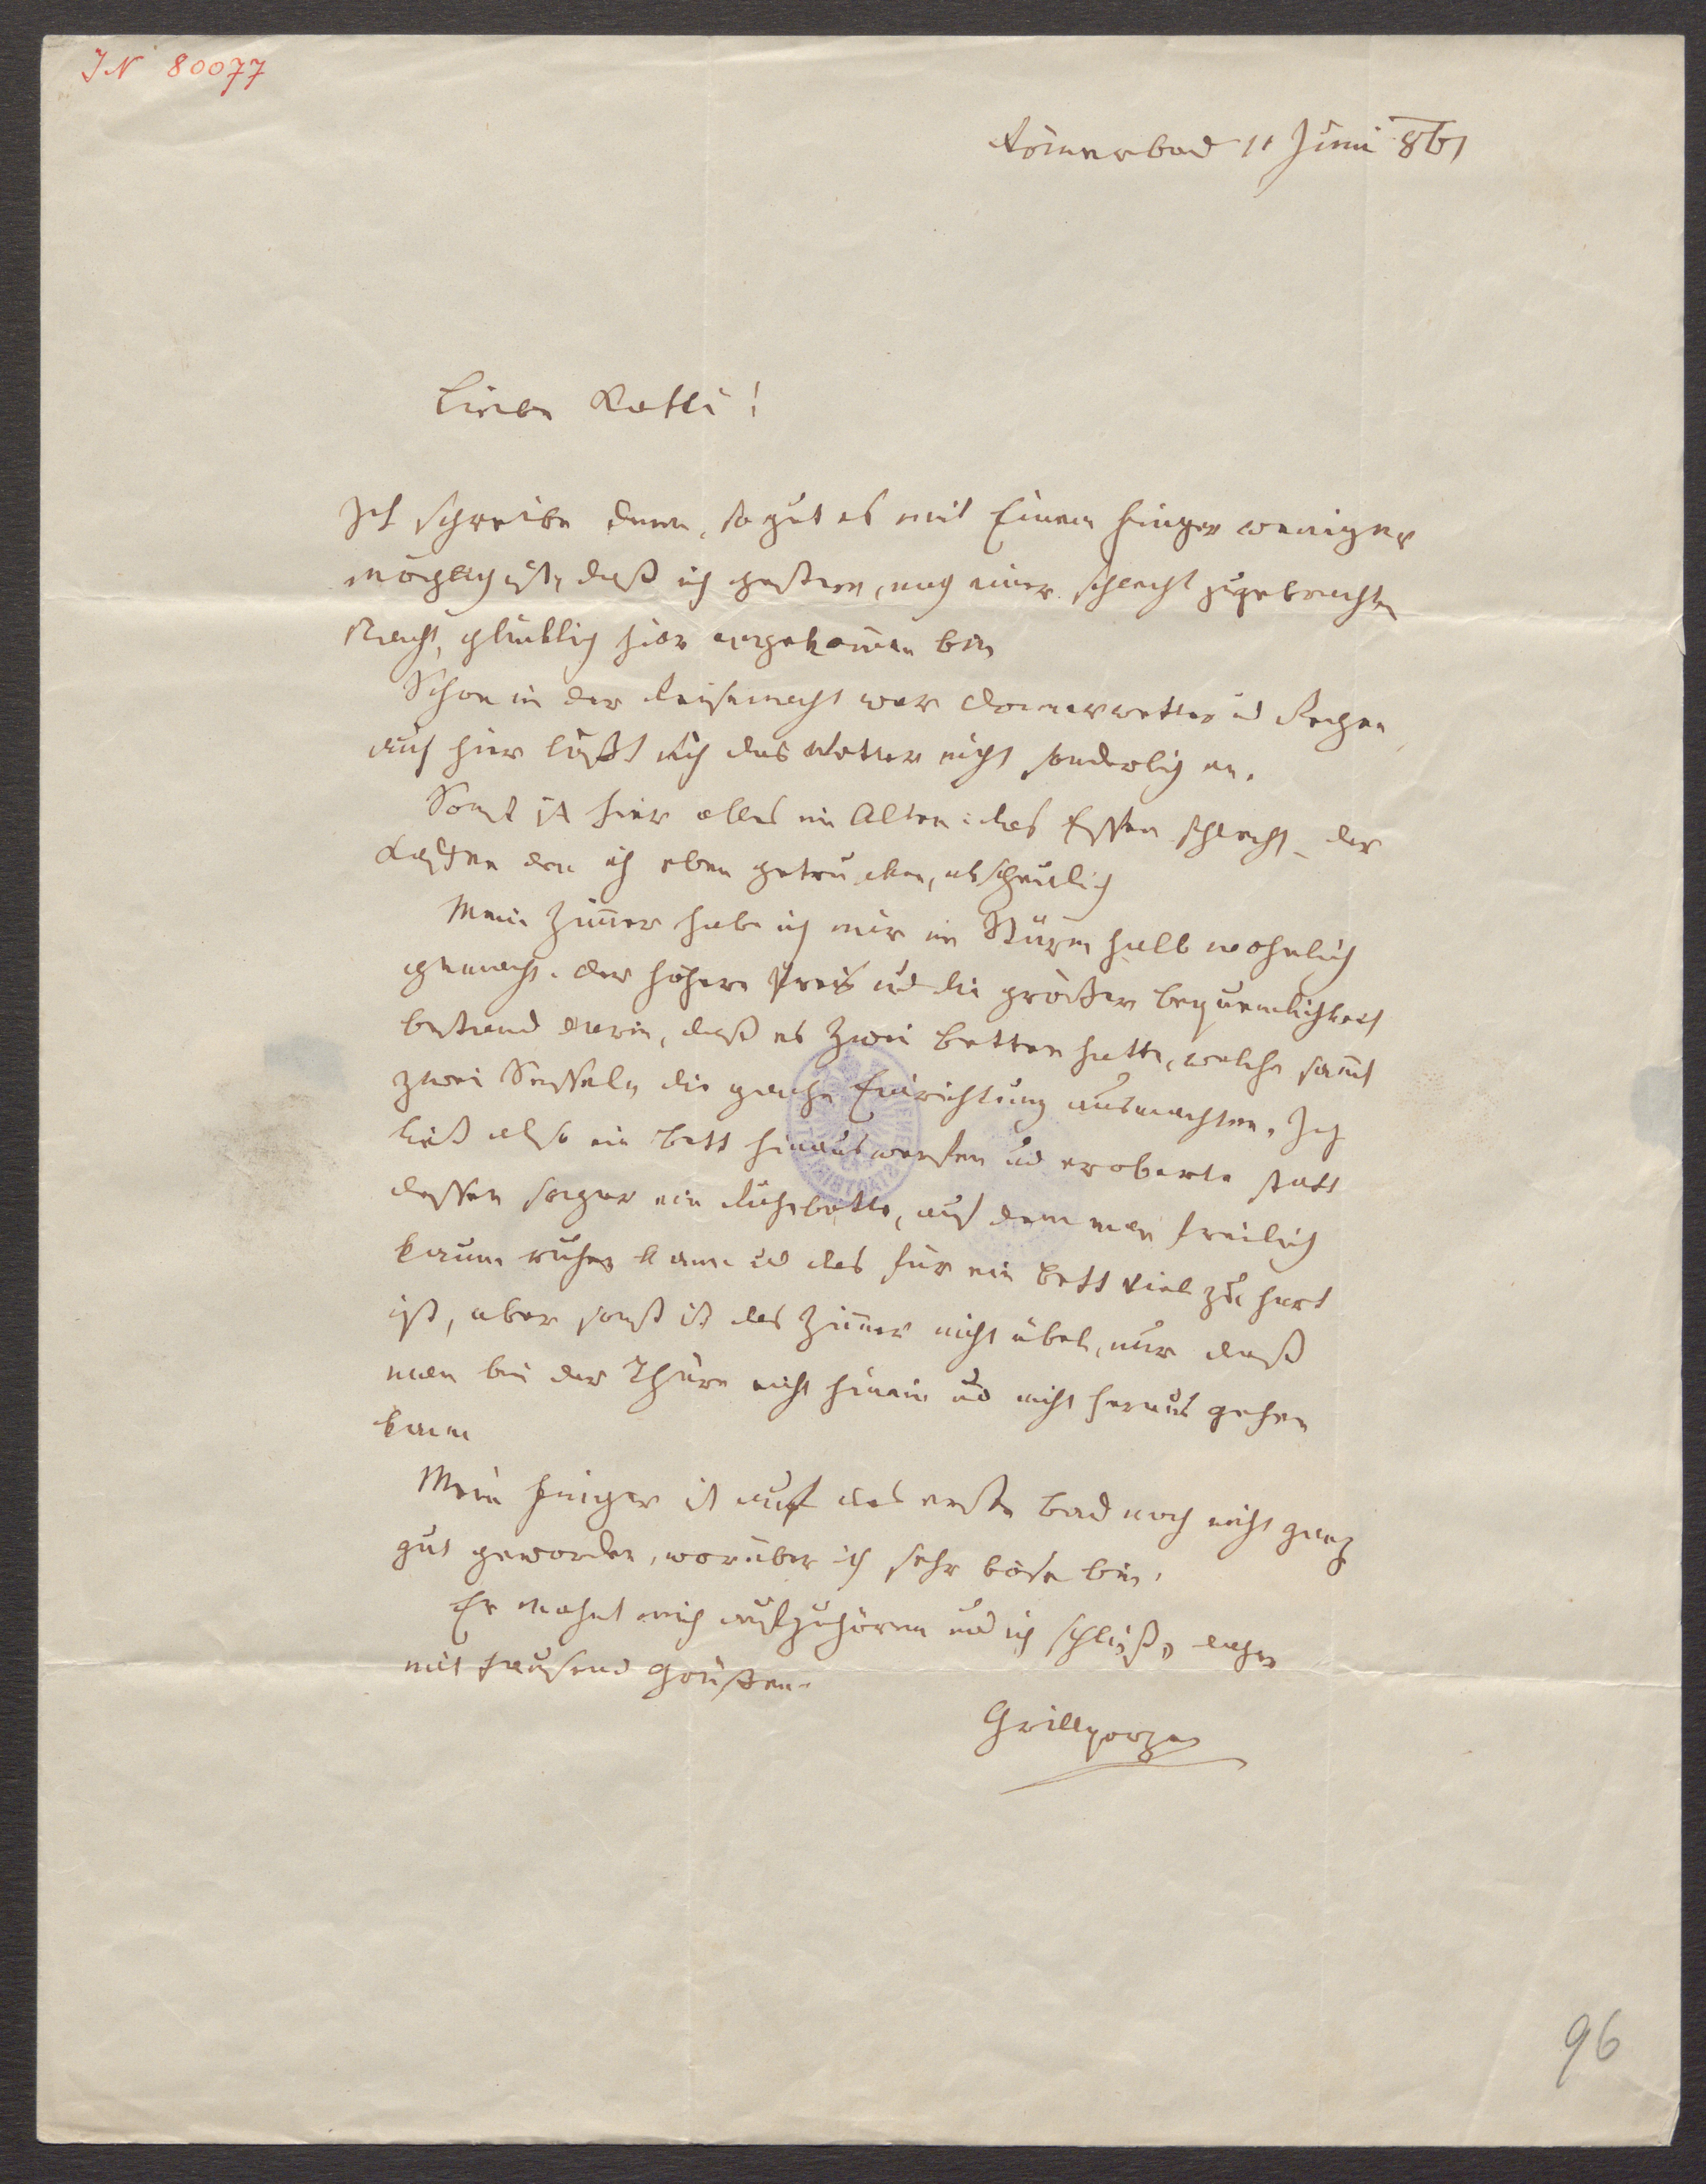 JN 80077
Römerbad 11 Juni 861
Liebe Kathi!
Ich schreibe denn, so gut es mit Einem Finger weniger
möglich ist, daß ich gestern, nach einer schlecht zugebrachten
Nacht, glücklich hier angekom̄en bin
Schon in der Reisenacht war Donnerwetter ud Regen
auch hier läßt sich das Wetter nicht sonderlich an.
Sonst ist hier alles im Alten: das Essen schlecht, der
Kaffee den ich eben getrunken, abscheulich
Mein Zim̄er habe ich mir im Sturm halb wohnlich
gemacht. Der höhere Preis ud die größere Bequemlichkeit
bestand darin, daß es zwei Betten hatte, welche sam̄t
zwei Sesseln die ganze Einrichtung ausmachten. Ich
ließ also ein Bett hinauswerfen ud eroberte statt
dessen sogar ein Ruhebette, auf dem man freilich
kaum ruhen kann ud das für ein Bett viel zu hart
ist, aber sonst ist das Zim̄er nicht übel, nur daß
man bei der Thüre nicht hinein ud nicht heraus gehen
kann
Mein Finger ist auf das erste Bad noch nicht ganz
gut geworden, worüber ich sehr böse bin.
Er mahnt mich aufzuhören ud ich schließe daher
mit tausend Grüßen.
Grillparzer
96